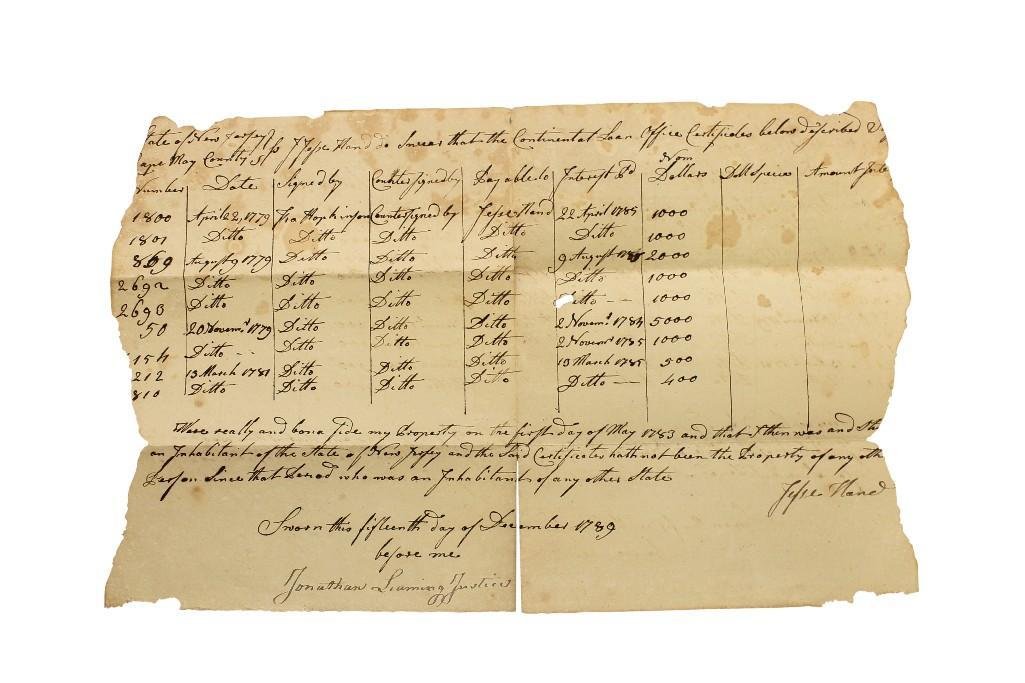 State of New Jersey
Cape May County Ss I Jesse Hand do Swear that the Continental Loan Office Certificates below described
Number Date Signed by Countersigned by Payable to Interest Pd Nom Dollars Doll Specie Amount
1800 April 22, 1779 Fra Hopkinson Countersigned by Jesse Hand 22 April 1785 1000
1801 Ditto Ditto Ditto Ditto Ditto 1000
869 August 9 1779 Ditto Ditto Ditto 9 August 2000
2692 Ditto Ditto Ditto Ditto Ditto 1000
2693 Ditto Ditto Ditto Ditto Ditto 1000
50 20 Novemr 1779 Ditto Ditto Ditto 2 Novemr 1784 5000
154 Ditto Ditto Ditto Ditto 2 Novemr 1785 1000
212 13 March 1781 Ditto Ditto Ditto 13 March 1785 500
810 Ditto Ditto Ditto Ditto Ditto 400
Were really and bona fide my Property on the first day of May 1783 and that I then was and
an Inhabitant of the State of New Jersey and the Said Certificates hath not been the Property of any oth
Person Since that Period who was an Inhabitant of any other State
Jesse Hand
Sworn this fifteenth day of December 1789
before me
Jonathan Leaming Justice